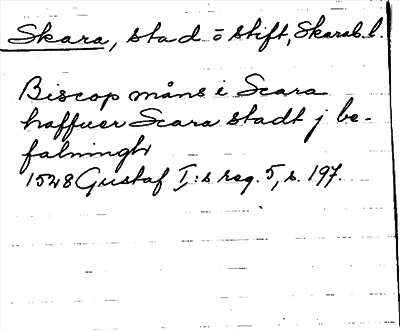 Skara, stad o stift, Skarab.l.
Biscop måns i Scara
haffuer Scara stadt j be-
falningh
1528 Gustaf I:s reg. 5, s. 197.